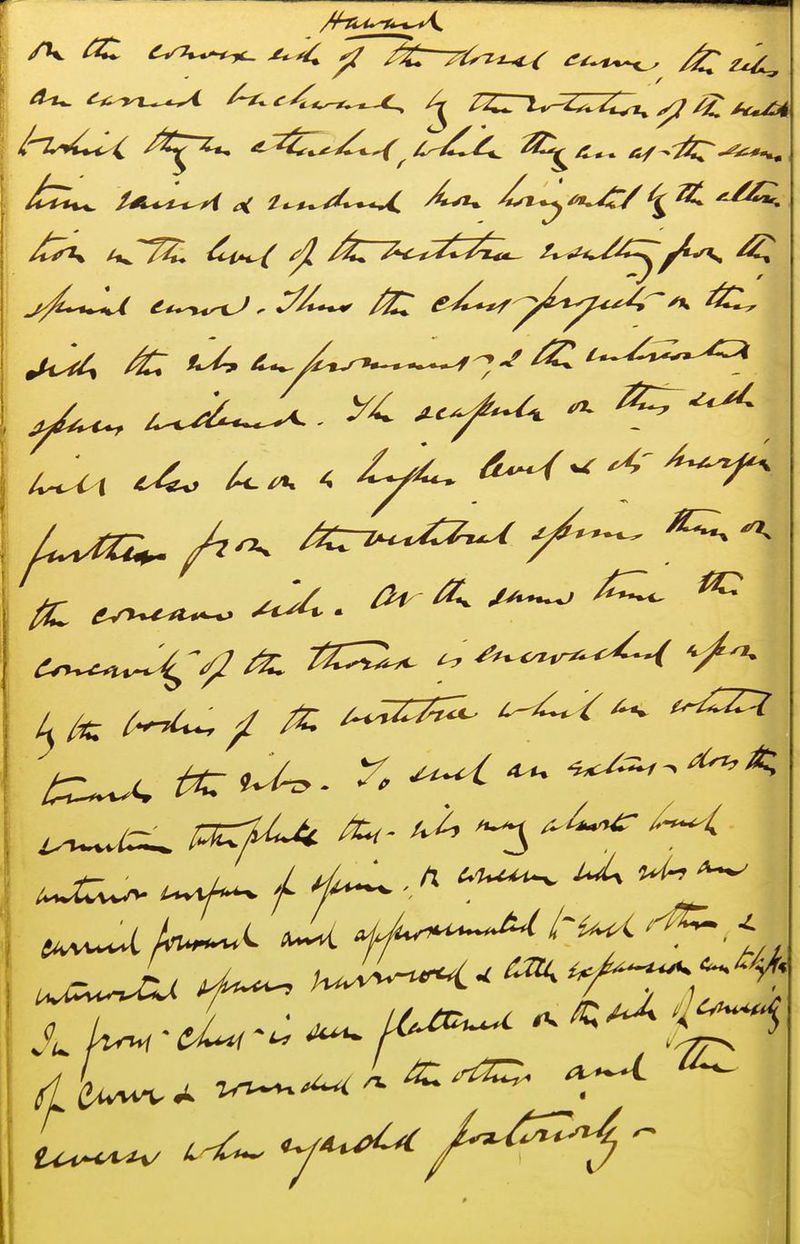 Howard
On the convex side of the dorsal curve, the ribs
are carried backwards by the rotation of the vertebrae
to which they are attached, while they are at the same
time raised & rendered more horizontal by the altera
tion in the level of the vertebrae resulting from the
spinal curve. Thus the chest projects on this
side the ribs are prominent, & the intercostal
spaces widened. The scapula on this side
will also be on a higher level & its margin
further from the vertebral spines than on
the concave side. At the same time the
concavity of the thorax is encroached upon
by the bodies of the vertebrae which are rotated
towards the ribs. To such an extent does this
sometimes take place that ribs may almost touch
anterior surface of spine. On concave side ribs are
carried forward and approximated to each other, &
intercostal spaces narrowed & little expansion can take place
In front chest is seen flattened on the side of convexity
of curve & rounded on the other and the
reverse when regarded posteriorly -